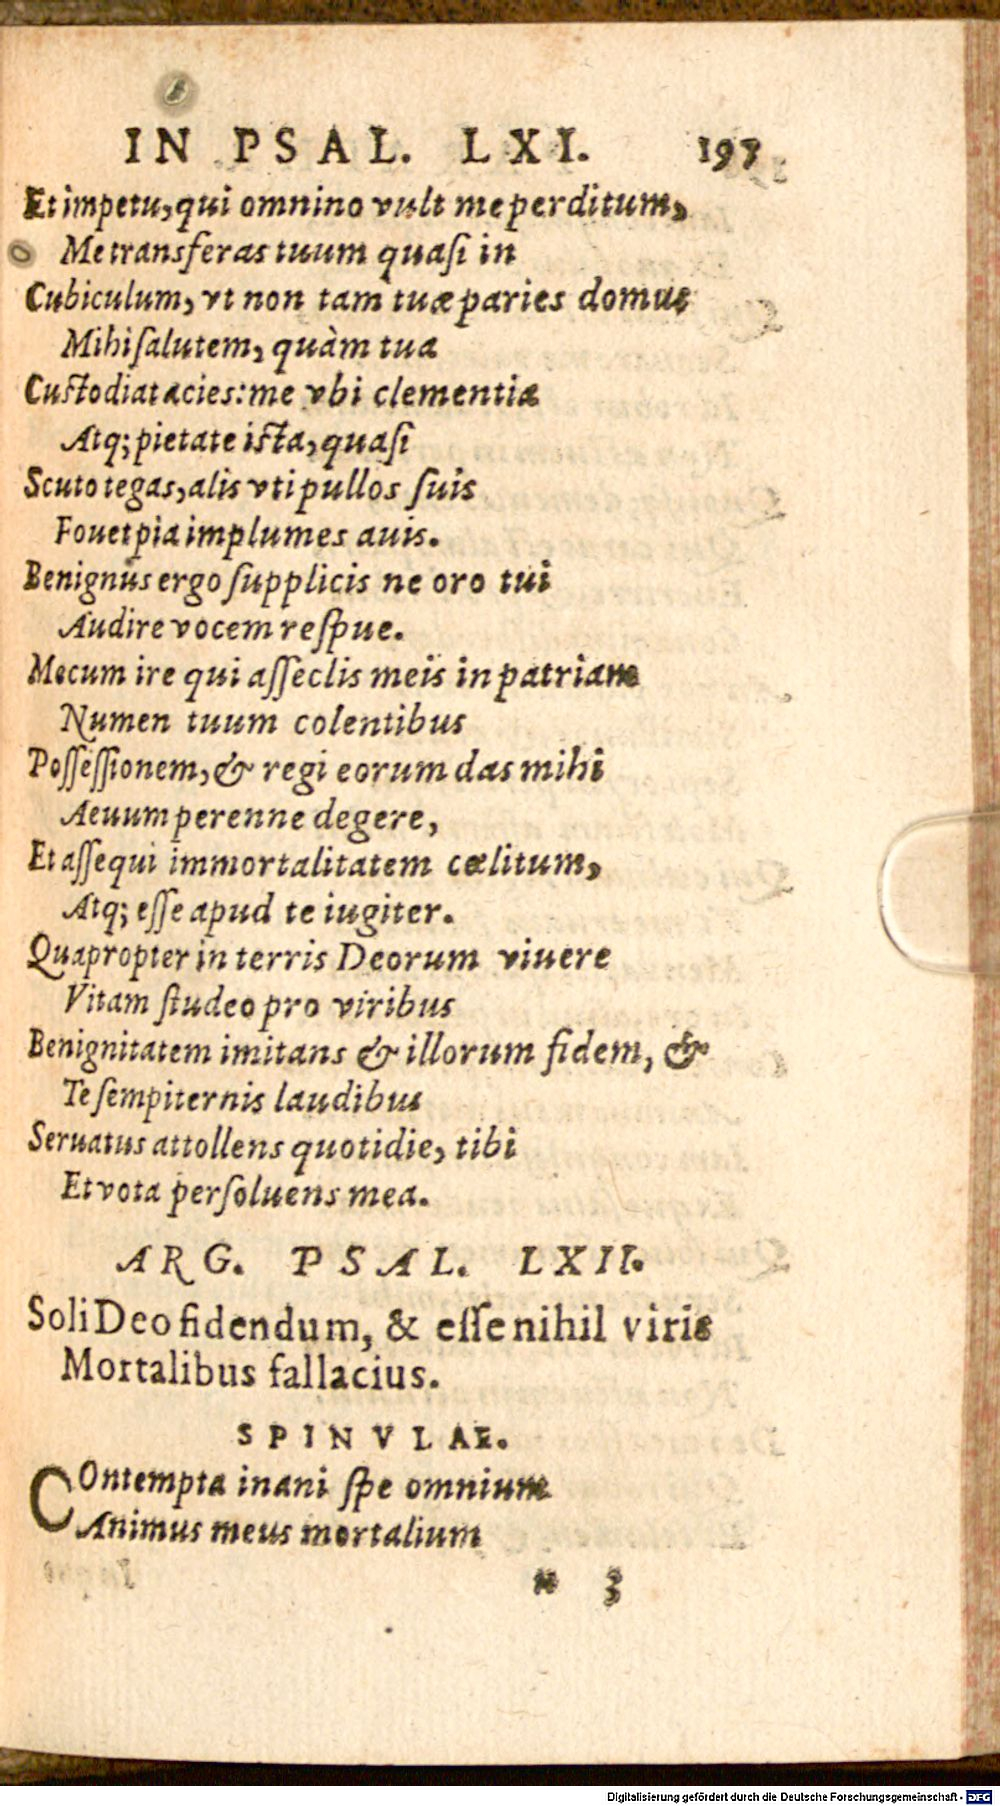 IN PSAL. LXI. 197
Et impetu, qui omnino vult me perditum,
Me transferas tuum quaſi in
Cubiculum, vt non tam tuæ paries domus
Mihi ſalutem, quàm tua
Cuſtodiat acies: me vbi clementiæ
Atq; pietate iſta, quaſi
Scuto tegas, alis vti pullos ſuis
Fouet pia implumes auis.
Benignus ergo ſupplicis ne oro tui
Audire vocem reſpue.
Mecum ire qui aſſeclis meis in patriam
Numen tuum colentibus
Poſſeſſionem, & regi eorum das mihi
Aeuum perenne degere,
Et aſſequi immortalitatem cælitum,
Atq; eſſe apud te iugiter.
Quapropter in terris Deorum viuere
Vitam ſtudeo pro viribus
Benignitatem imitans & illorum fidem, &
Te ſempiternis laudibus
Seruatus attollens quotidie, tibi
Et vota perſoluens mea.
ARG. PSAL. LXII.
Soli Deo fidendum, & eſſe nihil viris
Mortalibus fallacius.
SPINVLAE.
COntempta inani ſpe omnium
Animus meus mortalium
N 3
Digitalisierung gefördert durch die Deutsche Forschungsgemeinschaft - DFG